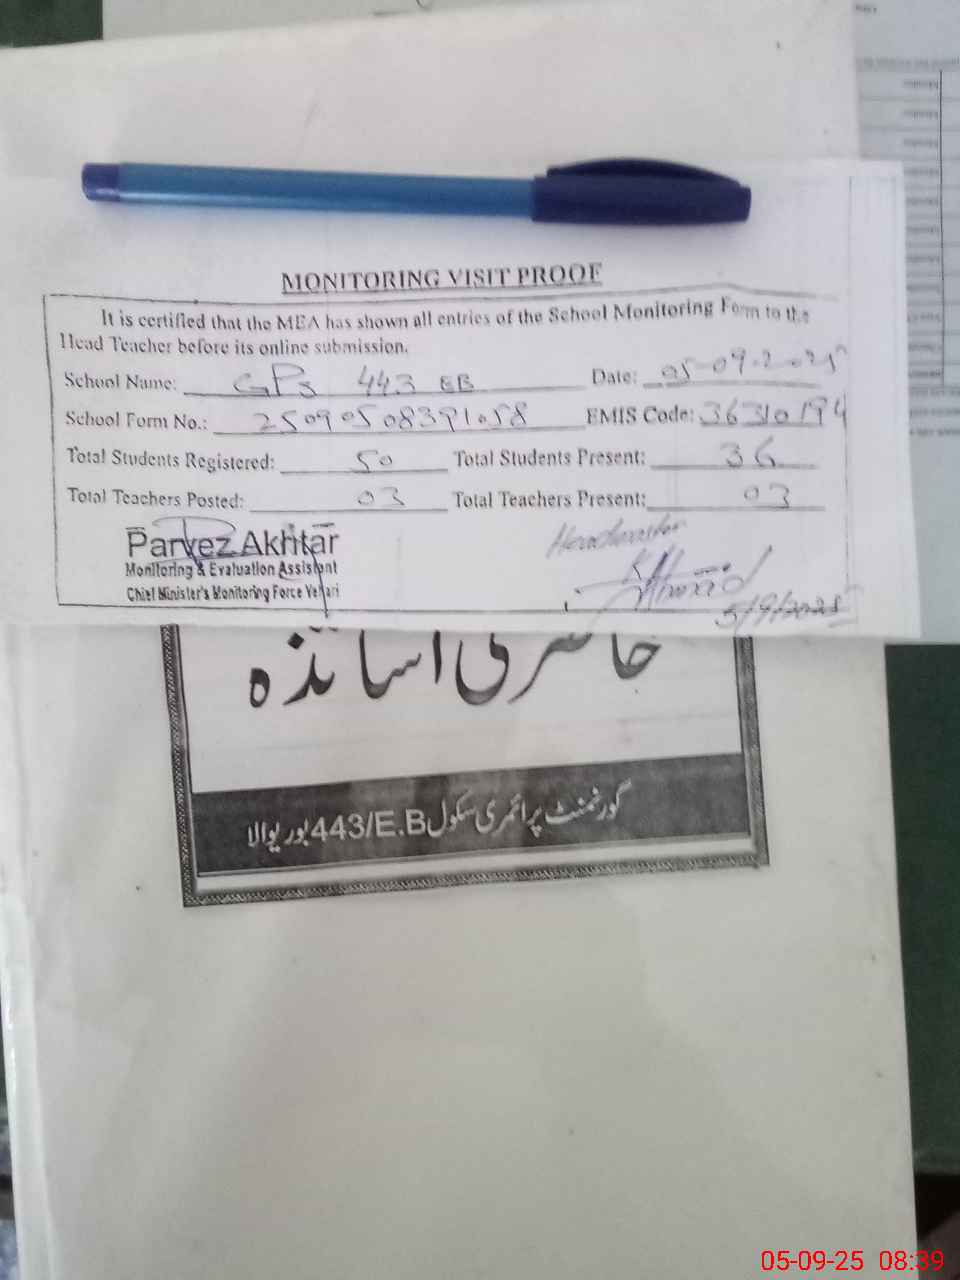 MONITORING VISIT PROOF
It is certified that the MEA has shown all entries of the School Monitoring Form to the
Head Teacher before its online submission.
School Name: GPS 443 EB Date: 05-09-2025
School Form No.: 25090508391058 EMIS Code: 36310194
Total Students Registered: 50 Total Students Present: 36
Total Teachers Posted: 03 Total Teachers Present: 03
Parvez Akhtar
Monitoring & Evaluation Assistant
Chief Minister's Monitoring Force Vehari
Headmaster
5/9/2025
حاضری اساتذہ
گورنمنٹ پرائمری سکول 443/E.B بوریوالا
05-09-25 08:39